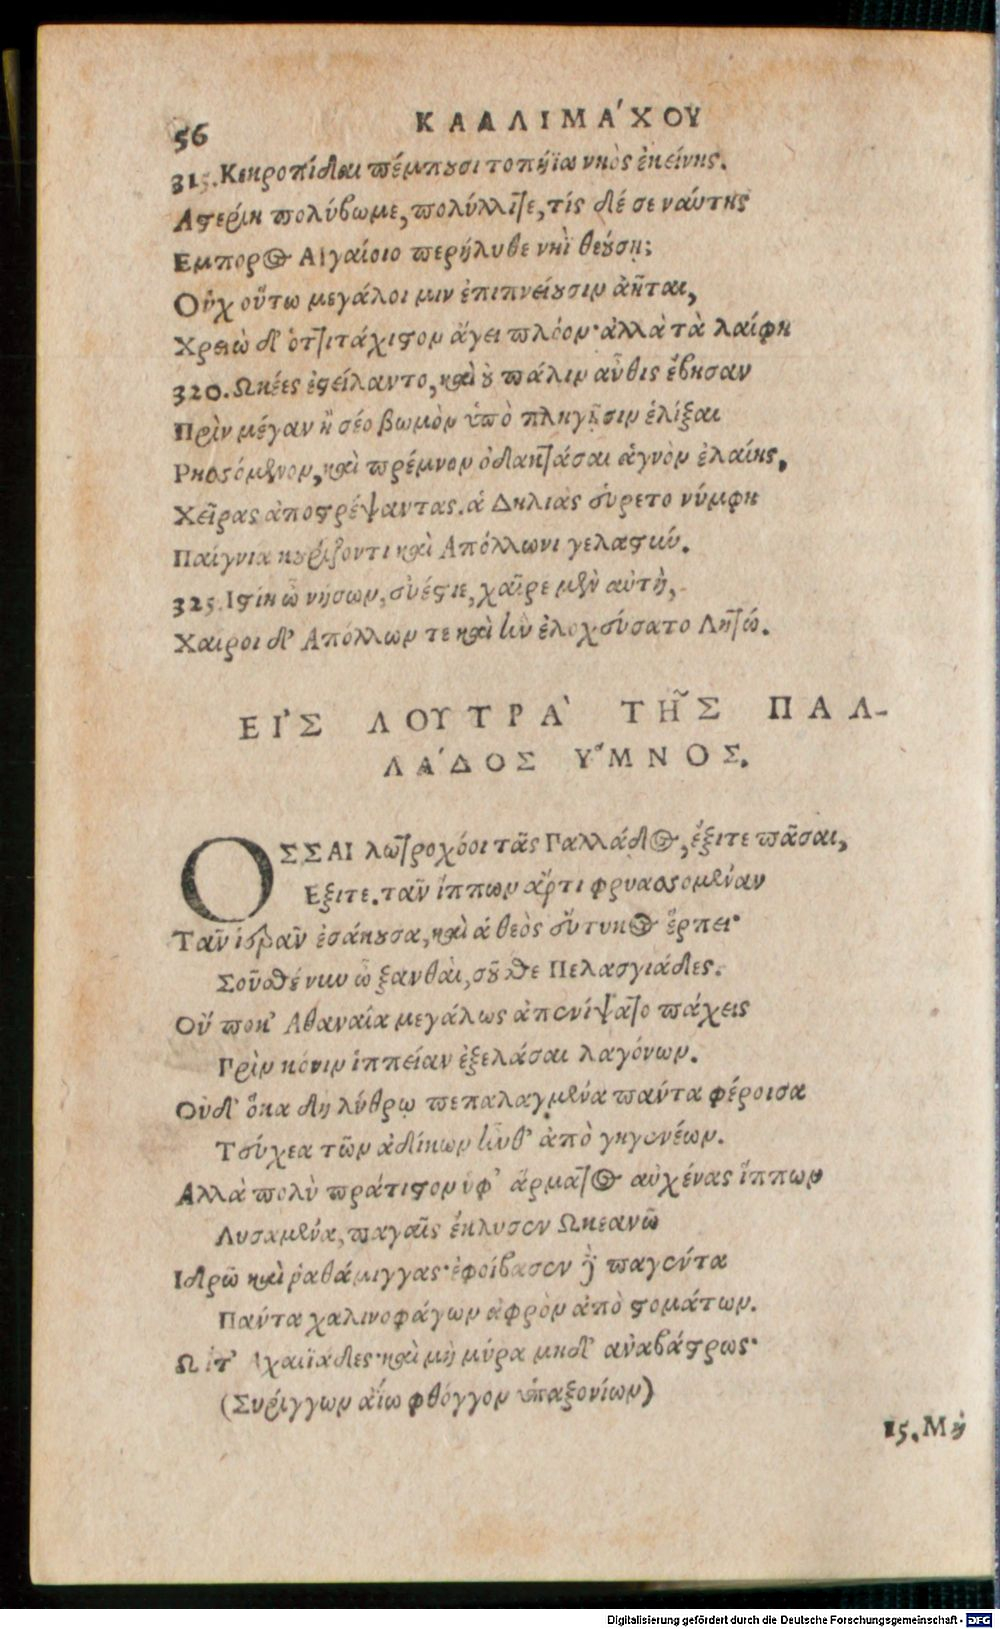 56
ΚΑΛΛΙΜΆΧΟΥ
315. Κεκροπίδαι πέμπουσι τοπήϊα νηὸς ἐκείνης.
Αστερίη πολύβωμε, πολύλλιτε, τίς δέ σε ναύτης
Εμπορος Αἰγαίοιο περήλυθε νηῒ θεούσῃ;
Οὐχ οὕτω μεγάλοι μιν ἐπιπνείουσιν ἀῆται,
Χρειὼ δ' ὁττιτάχιστον ἄγει πλόον· ἀλλὰ τὰ λαίφη
320. Ωκέες ἐστείλαντο, καὶ οὐ πάλιν αὖθις ἔβησαν
Πρὶν μέγαν ἢ σέο βωμὸν ὑπὸ πληγῇσιν ἑλίξαι
Ρησσόμενον, καὶ πρέμνον ὀδακτάσαι ἁγνὸν ἐλαίης,
Χεῖρας ἀποστρέψαντας. ἁ Δηλιὰς εὕρετο νύμφη
Παίγνια κουρίζοντι καὶ Απόλλωνι γελαστύν.
325. Ιστίη ὦ νήσων, εὐέστιε, χαῖρε μὲν αὐτὴ,
Χαιροι δ' Απόλλων τε καὶ ἣν ἐλοχεύσατο Λητώ.
ΕΙ'Σ ΛΟΥΤΡΑ' ΤΗ͂Σ ΠΑΛ-
ΛΆΔΟΣ ΥΜΝΟΣ.
ΟΣΣΑΙ λωτροχόοι τᾶς Παλλάδος, ἔξιτε πᾶσαι,
Εξιτε. ταν ἵππων ἄρτι φρυασσομενᾶν
Ταν ἱερᾶν ἐσάκουσα, καὶ ἁ θεὸς εὔτυκος ἕρπει·
Σοῦσθέ νυν ὦ ξανθαὶ, σοῦσθε Πελασγιάδες.
Οὔ ποκ' Αθαναία μεγάλως ἀπενίψατο πάχεις
Πρὶν κόνιν ἱππείαν ἐξελάσαι λαγόνων.
Ουδ' ὅκα δὴ λύθρῳ πεπαλαγμένα παντα φέροισα
Τεύχεα τῶν ἀδίκων ἦνθ' ἀπὸ γηγενέων.
Αλλὰ πολὺ πράτιστον ὑφ' ἅρματος αὐχένας ἵππων
Λυσαμένα, παγαῖς ἔκλυσεν Ωκεανῶ
Ιδρῶ καὶ ῥαθάμιγγας· ἐφοίβασεν δὲ παγέντα
Παντα χαλινοφάγων ἀφρὸν ἀπὸ στομάτων.
Ω ἴτ' Αχαιϊάδες· καὶ μὴ μύρα μηδ' αναβάστρως·
(Συρίγγων ἀΐω φθόγγον ὑπαξονίων)
15. Μὴ
Digitalisierung gefördert durch die Deutsche Forschungsgemeinschaft - DFG